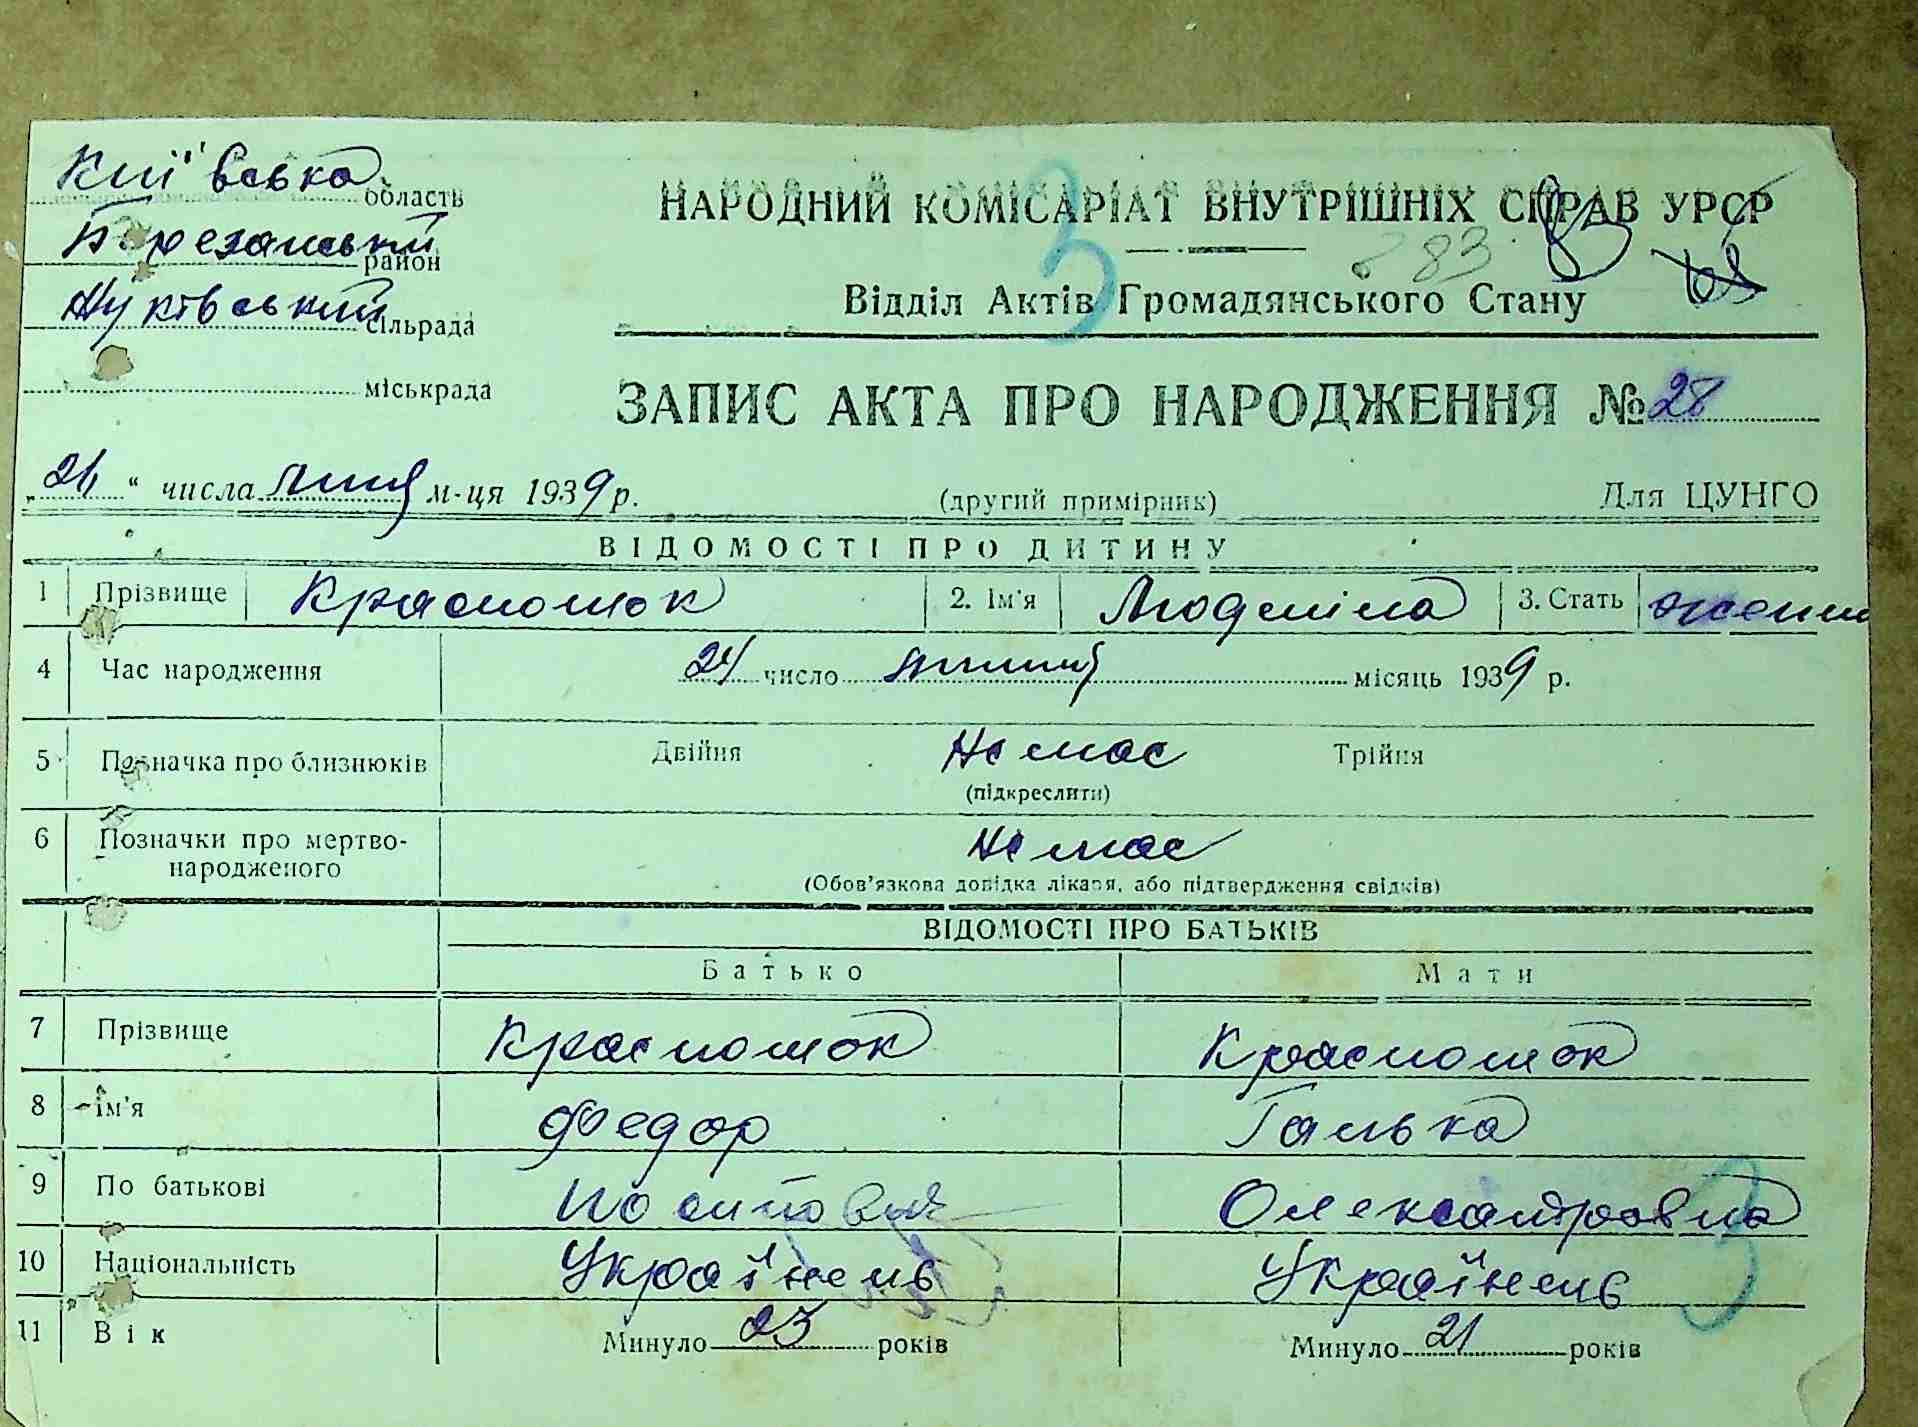 Київська область
Березанський район
сільрада
міськрада
НАРОДНИЙ КОМІСАРІАТ ВНУТРІШНІХ СПРАВ УРСР
83
Відділ Актів Громадянського Стану
ЗАПИС АКТА ПРО НАРОДЖЕННЯ № 28
" числа липня м-ця 1939 р. (другий примірник) Для ЦУНГО
ВІДОМОСТІ ПРО ДИТИНУ
1 Прізвище Красношок 2. Ім'я Людміла 3. Стать женш
4 Час народження число липня місяць 1939 р.
5 Позначка про близнюків Двійня Немає Трійня
(підкреслити)
6 Позначки про мертво-
народженого Немає
(Обов'язкова довідка лікаря, або підтвердження свідків)
ВІДОМОСТІ ПРО БАТЬКІВ
Батько Мати
7 Прізвище Красношок Красношок
8 Ім'я Федор Галька
9 По батькові Олександровна
10 Національність Українець Українець
11 Вік Минуло 23 років Минуло 21 років